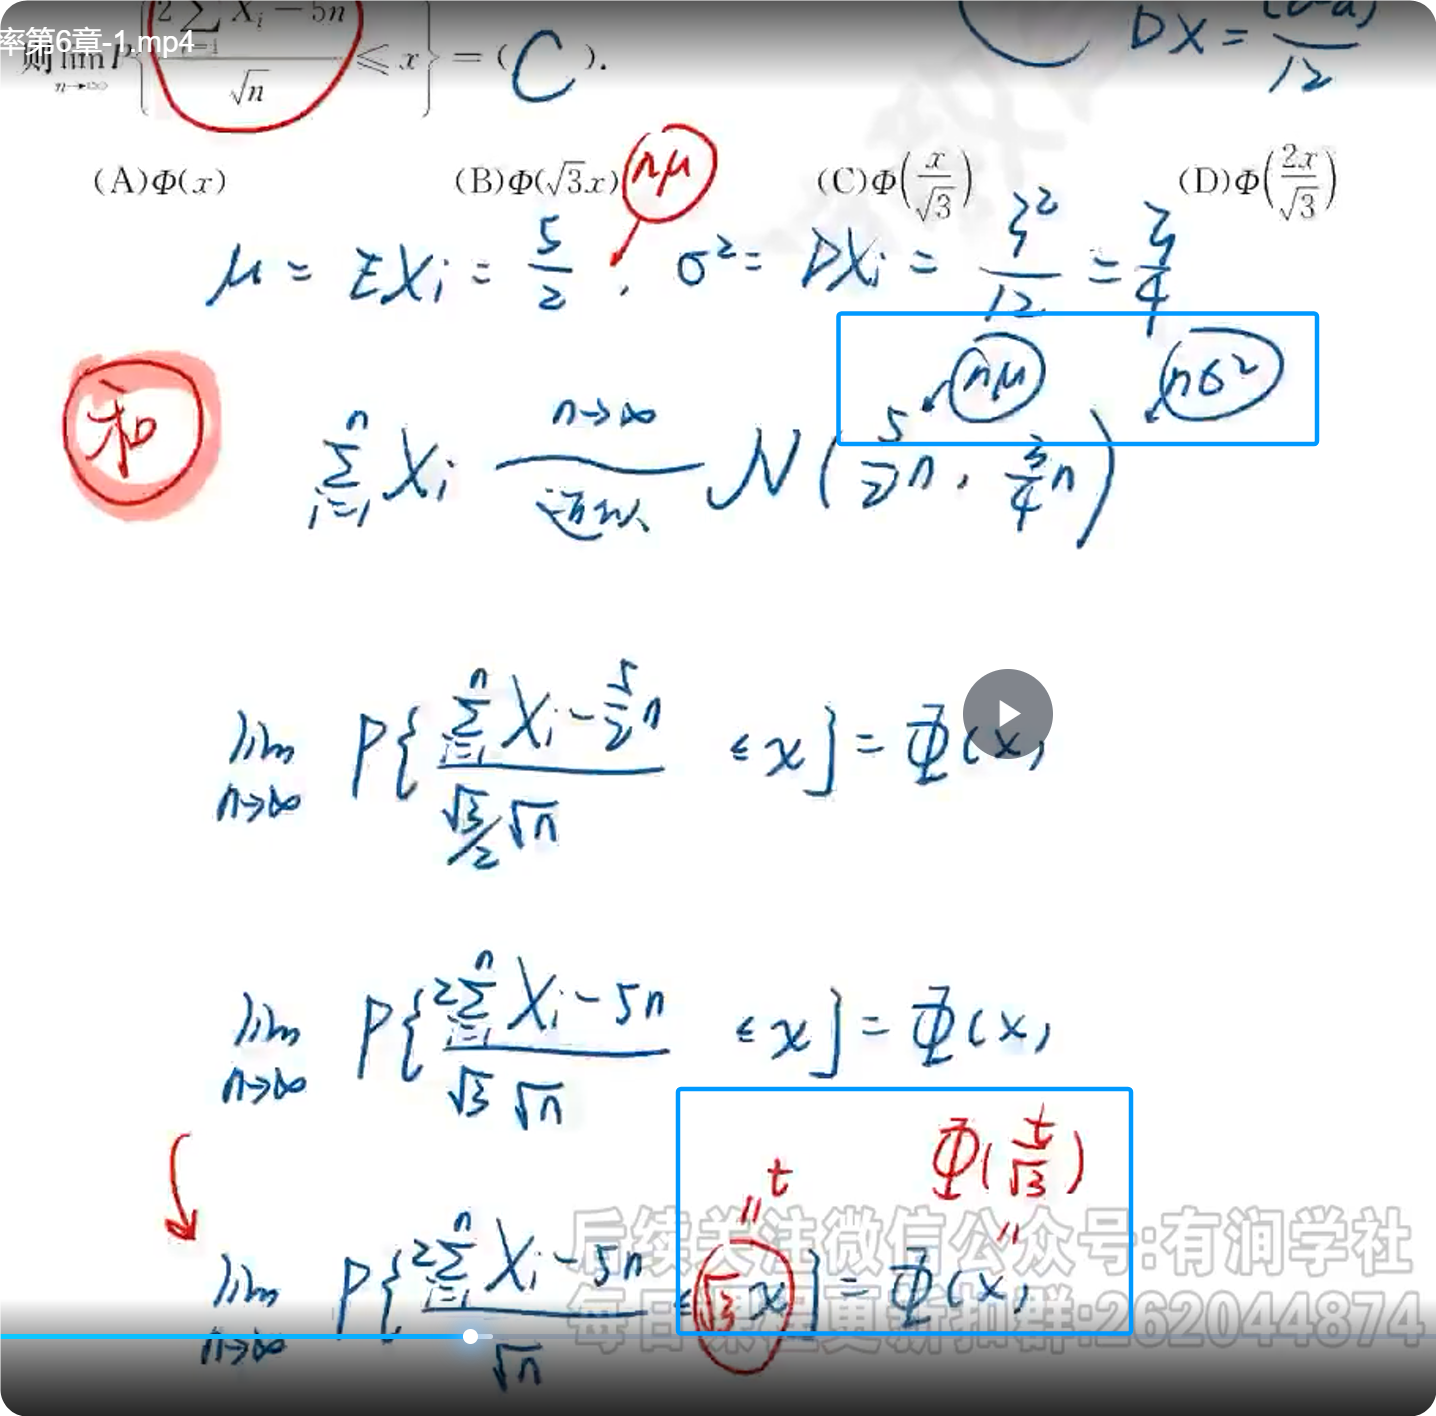 率第6章-1.mp4
DX = (b-a)² / 12
则 lim n→∞ P{ (2∑ i=1 Xi − 5n) / √n ≤ x } = ( C ).
nμ
(A)Φ(x) (B)Φ(√3x) (C)Φ(x/√3) (D)Φ(2x/√3)
μ = EXi = 5/2 , σ² = DXi = 3²/12 = 3/4
nμ nσ²
和
∑ i=1 n Xi n→∞ 近似 N( 5/2 n , 3/4 n )
lim n→∞ P{ (∑ i=1 n Xi − 5/2 n) / (√3/2 √n) ≤ x } = Φ(x)
lim n→∞ P{ (2∑ i=1 n Xi − 5n) / (√3 √n) ≤ x } = Φ(x)
t Φ(t/√3)
〃 〃
lim n→∞ P{ (2∑ i=1 n Xi − 5n) / √n ≤ √3 x } = Φ(x)
后续关注微信公众号:有润学社
每日课程更新扣群:262044874